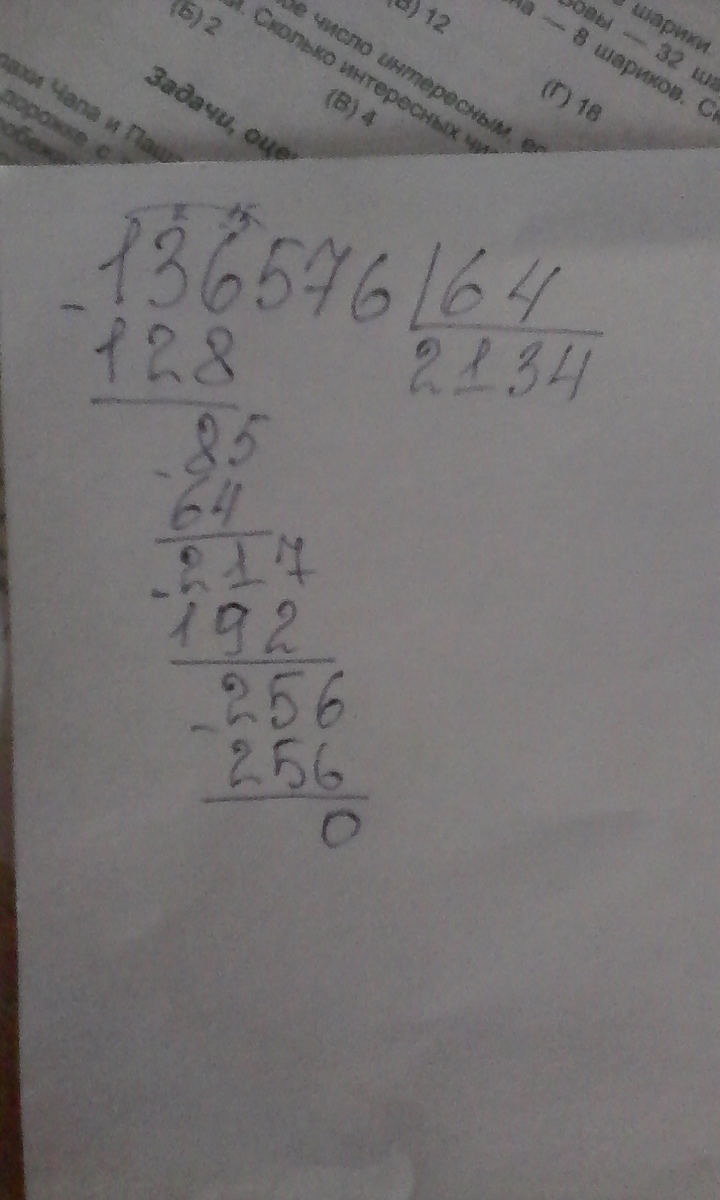 в шарики.
Вовы — 32 ша
на — 8 шариков. Ск
(В) 12
(Г) 18
ое число интересным, ес
. Сколько интересных чи
(Б) 2
(В) 4
Задачи, оце
лахи Чапа и Паш
дорожке с
робеж
136576 64
- 128 2134
- 85
64
- 217
192
- 256
256
0